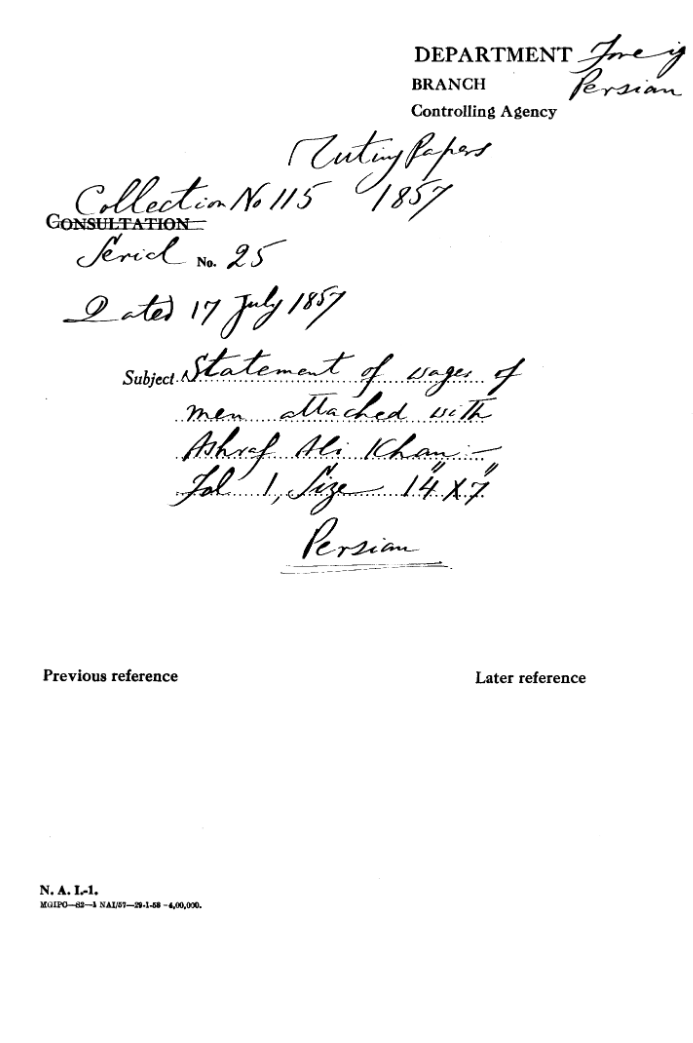 DEPARTMENT Foreig
BRANCH Persian
Controlling Agency
Mutiny Papers
Collection No 115 1857
CONSULTATION
Serial No. 25
Dated 17 July 1857
Subject Statement of wages of
men attached with
Ashraf Ali Khan -
Fol 1, Size 14" X 7"
Persian
Previous reference
Later reference
N. A. I.-1.
MGIPC—82—1 NAI/57—29-1-58—4,00,000.